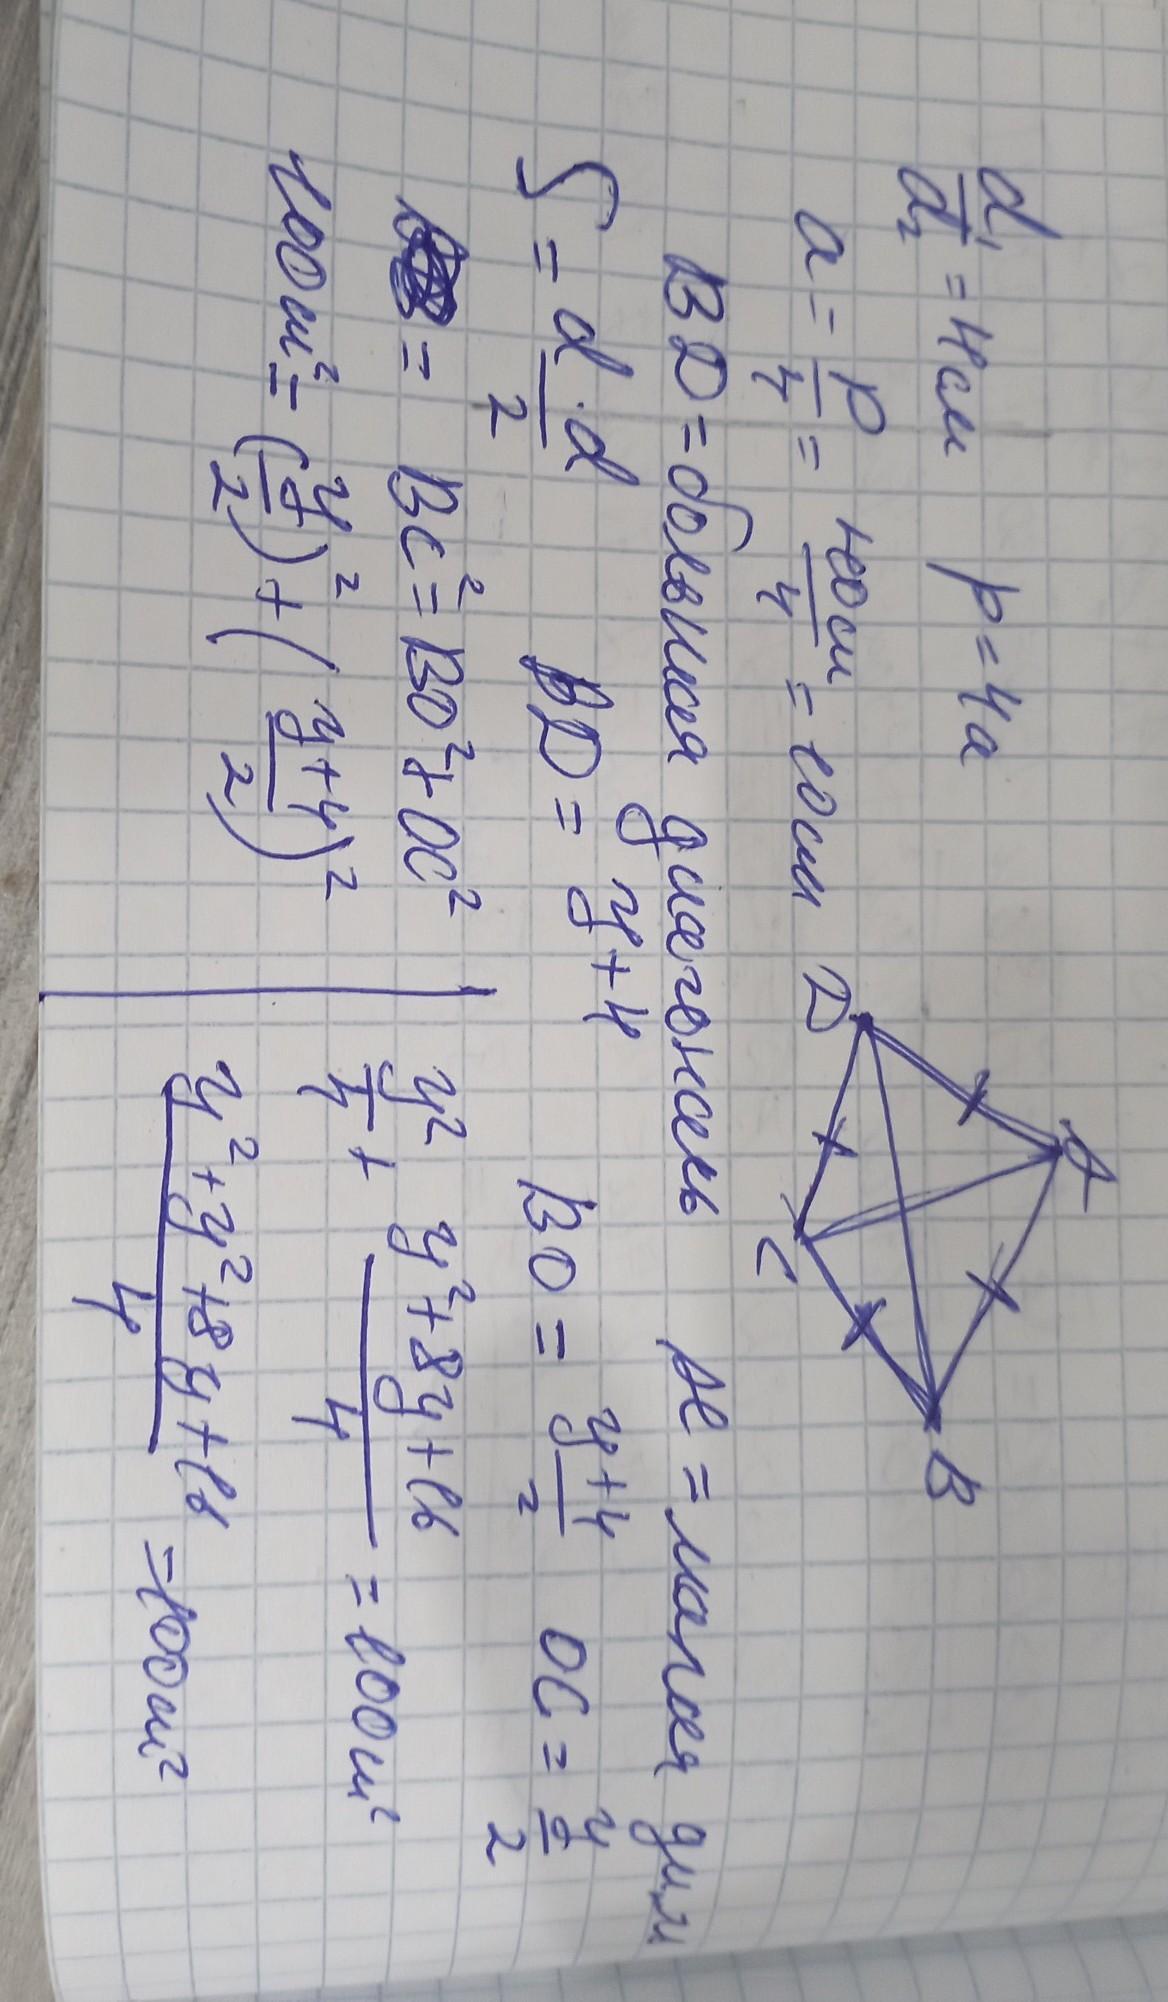 d₁/d₂ = 4см p=4a
a = p/4 = 40см/4 = 10см
D A B C
BD = большая диагональ AC = малая диа
S = d·d/2 BD = y+4 BO = y+4/2 OC = y/2
= BC² = BO² + OC²
100см² = (y/2)² + (y+4/2)²
y²/4 + y²+8y+16/4 = 100см²
y²+y²+8y+16/4 = 100см²